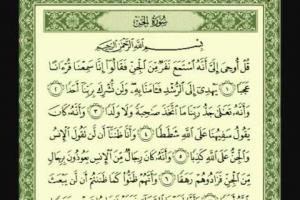 سُورَةُ الجِنِّ
بِسْمِ اللَّهِ الرَّحْمَٰنِ الرَّحِيمِ
قُلْ أُوحِيَ إِلَيَّ أَنَّهُ اسْتَمَعَ نَفَرٌ مِنَ الْجِنِّ فَقَالُوا إِنَّا سَمِعْنَا قُرْءَانًا
عَجَبًا ١ يَهْدِي إِلَى الرُّشْدِ فَـَٔامَنَّا بِهِ وَلَنْ نُشْرِكَ بِرَبِّنَا أَحَدًا ٢
وَأَنَّهُ تَعَالَى جَدُّ رَبِّنَا مَا اتَّخَذَ صَاحِبَةً وَلَا وَلَدًا ٣ وَأَنَّهُ كَانَ
يَقُولُ سَفِيهُنَا عَلَى اللَّهِ شَطَطًا ٤ وَأَنَّا ظَنَنَّا أَنْ لَنْ تَقُولَ الْإِنْسُ
وَالْجِنُّ عَلَى اللَّهِ كَذِبًا ٥ وَأَنَّهُ كَانَ رِجَالٌ مِنَ الْإِنْسِ يَعُوذُونَ بِرِجَالٍ
مِنَ الْجِنِّ فَزَادُوهُمْ رَهَقًا ٦ وَأَنَّهُمْ ظَنُّوا كَمَا ظَنَنْتُمْ أَنْ لَنْ يَبْعَثَ